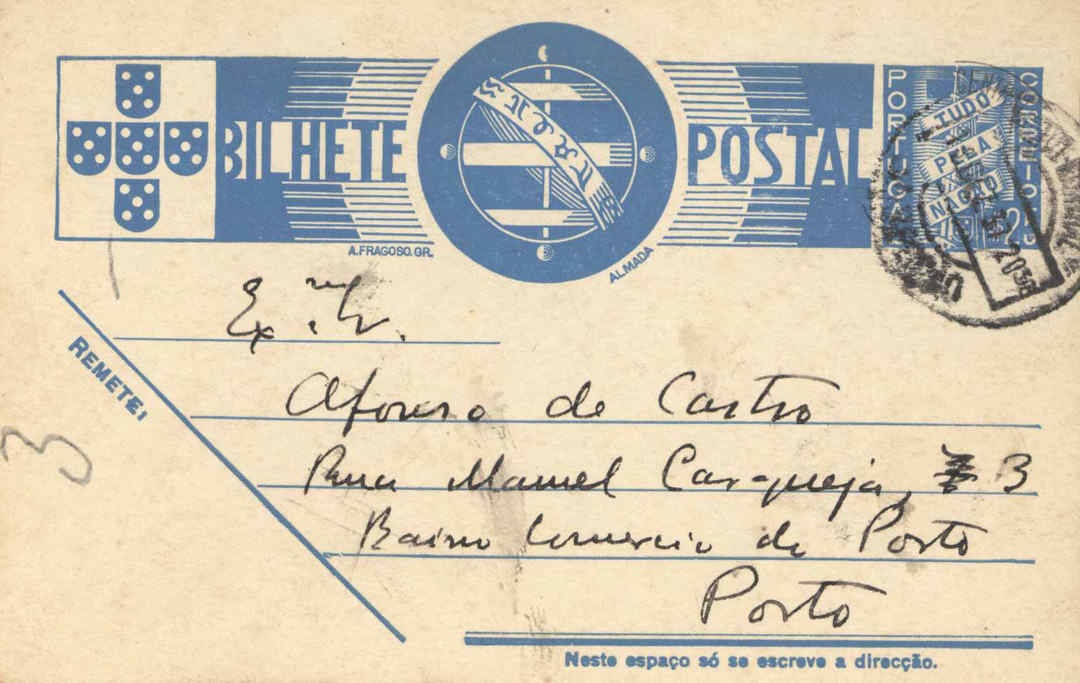 BILHETE POSTAL
PORTUGAL
CORREIO
TUDO
PELA
NAÇÃO
25
A. FRAGOSO. GR.
ALMADA
REMETE:
Exmo Sr.
Afonso de Castro
Rua Manuel Carqueja, 3
Bairro Comercio do Porto
Porto
3
Neste espaço só se escreve a direcção.